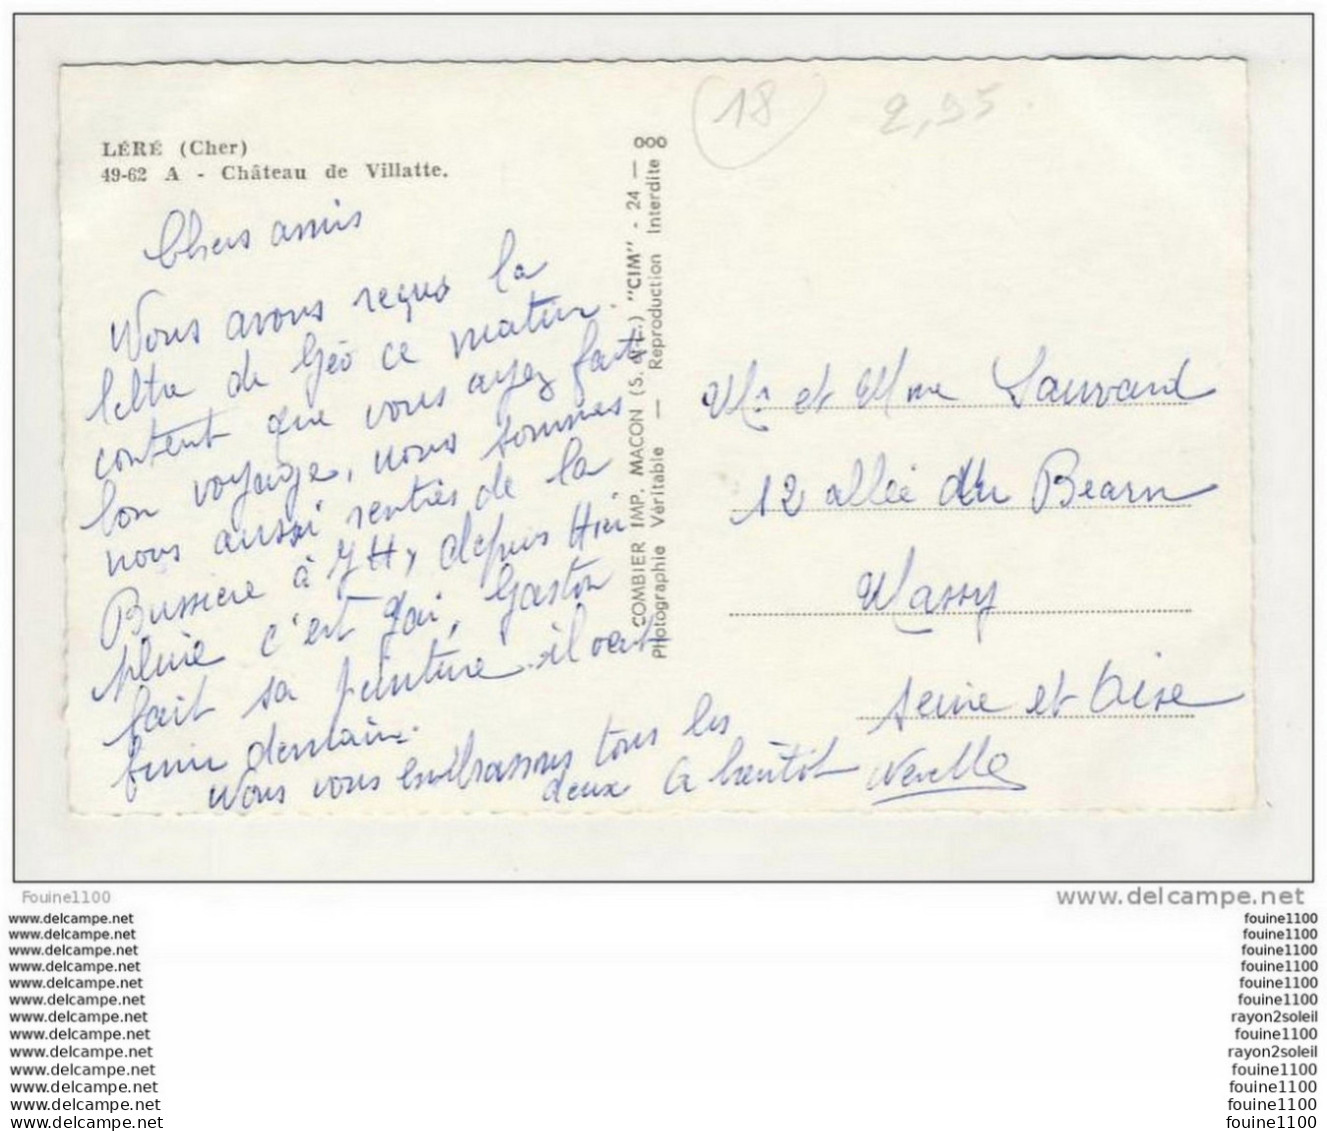 (18)
2,95
LÉRÉ (Cher)
49-62 A - Château de Villatte.
Chers amis
Nous avons reçus la
lettre de Géo ce matin.
content que vous ayez fait
bon voyage, nous sommes
nous aussi rentrés de la
Bussiere à 7H, depuis Hier
pluie c'est gai, Gaston
fait sa peinture il veut
finir demain.
Nous vous embrassons tous les
deux A bientôt
COMBIER IMP. MACON (S. & L.) "CIM" - 24 — 000
Photographie Véritable — Reproduction Interdite
Mr et Mme Sauvard
12 allée du Bearn
Massy
Seine et Oise
Fouine1100
www.delcampe.net
www.delcampe.net
fouine1100
www.delcampe.net
fouine1100
www.delcampe.net
fouine1100
www.delcampe.net
fouine1100
www.delcampe.net
fouine1100
www.delcampe.net
fouine1100
www.delcampe.net
rayon2soleil
www.delcampe.net
fouine1100
www.delcampe.net
rayon2soleil
www.delcampe.net
fouine1100
www.delcampe.net
fouine1100
www.delcampe.net
fouine1100
www.delcampe.net
fouine1100